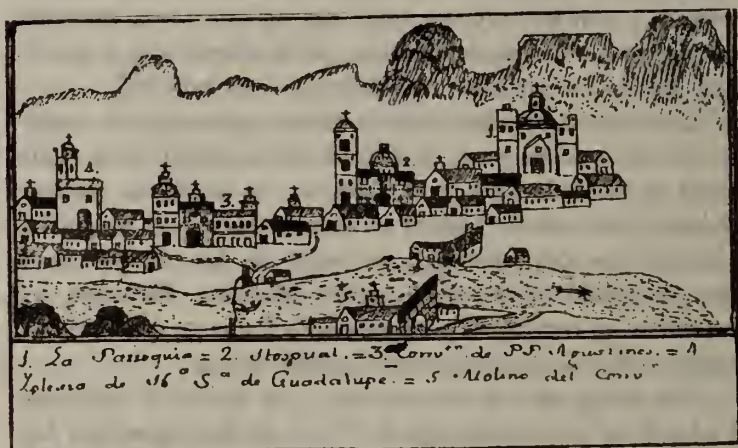 4.
3.
2.
1.
5
1. La Parroquia = 2. Hospital. = 3. Convᵗᵒ de P.P. Agustinos. = 4
Yglesia de Nᵃ Sᵃ de Guadalupe. = 5 Molino del Convᵗᵒ